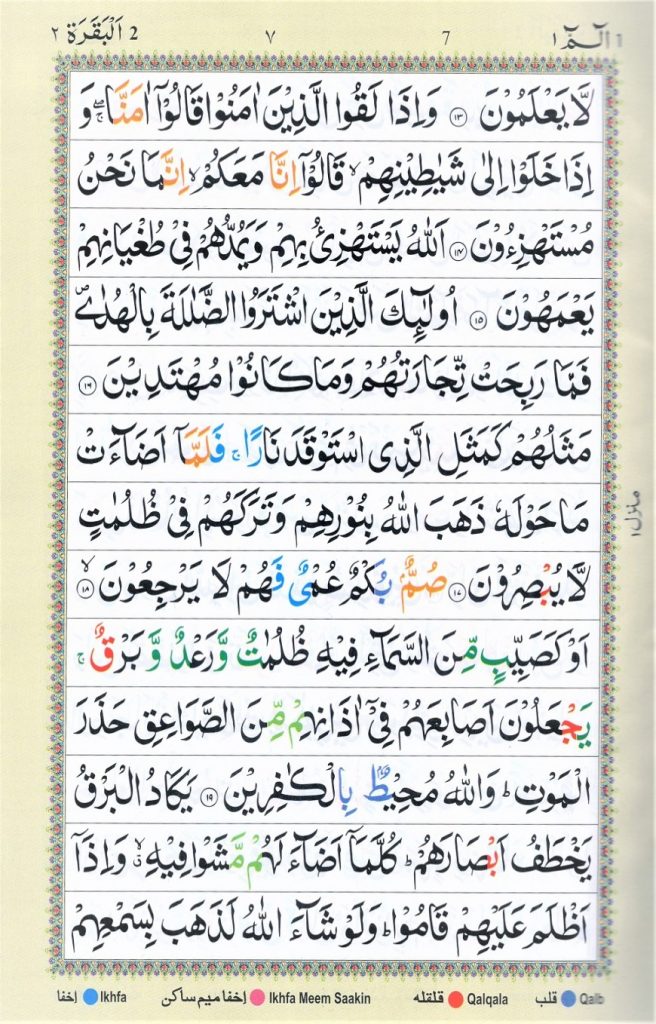 الٓمّٓ ١ 7 ٧ 2 اَلْبَقَرَة ٢
لَّا يَعْلَمُوْنَ ۝۱۳ وَاِذَا لَقُوا الَّذِيْنَ اٰمَنُوْا قَالُوْٓا اٰمَنَّا ۖۚ وَ
اِذَا خَلَوْا اِلٰى شَيٰطِيْنِهِمْ ۙ قَالُوْٓا اِنَّا مَعَكُمْ ۙ اِنَّمَا نَحْنُ
مُسْتَهْزِءُوْنَ ۝۱۴ اَللّٰهُ يَسْتَهْزِئُ بِهِمْ وَيَمُدُّهُمْ فِيْ طُغْيَانِهِمْ
يَعْمَهُوْنَ ۝۱۵ اُولٰٓئِكَ الَّذِيْنَ اشْتَرَوُا الضَّلٰلَةَ بِالْهُدٰى ۪
فَمَا رَبِحَتْ تِّجَارَتُهُمْ وَمَا كَانُوْا مُهْتَدِيْنَ ۝۱۶
مَثَلُهُمْ كَمَثَلِ الَّذِى اسْتَوْقَدَ نَارًا ۚ فَلَمَّآ اَضَآءَتْ
مَا حَوْلَهٗ ذَهَبَ اللّٰهُ بِنُوْرِهِمْ وَتَرَكَهُمْ فِيْ ظُلُمٰتٍ
لَّا يُبْصِرُوْنَ ۝۱۷ صُمٌّۢ بُكْمٌ عُمْيٌ فَهُمْ لَا يَرْجِعُوْنَ ۙ۝۱۸
اَوْ كَصَيِّبٍ مِّنَ السَّمَآءِ فِيْهِ ظُلُمٰتٌ وَّرَعْدٌ وَّبَرْقٌ ۚ
يَجْعَلُوْنَ اَصَابِعَهُمْ فِيْٓ اٰذَانِهِمْ مِّنَ الصَّوَاعِقِ حَذَرَ
الْمَوْتِ ؕ وَاللّٰهُ مُحِيْطٌۢ بِالْكٰفِرِيْنَ ۝۱۹ يَكَادُ الْبَرْقُ
يَخْطَفُ اَبْصَارَهُمْ ؕ كُلَّمَآ اَضَآءَ لَهُمْ مَّشَوْا فِيْهِ ۙۗ وَاِذَآ
اَظْلَمَ عَلَيْهِمْ قَامُوْا ؕ وَلَوْ شَآءَ اللّٰهُ لَذَهَبَ بِسَمْعِهِمْ
منزل ١
اِخفا Ikhfa اِخفا ميم ساكن Ikhfa Meem Saakin قلقله Qalqala قلب Qalb